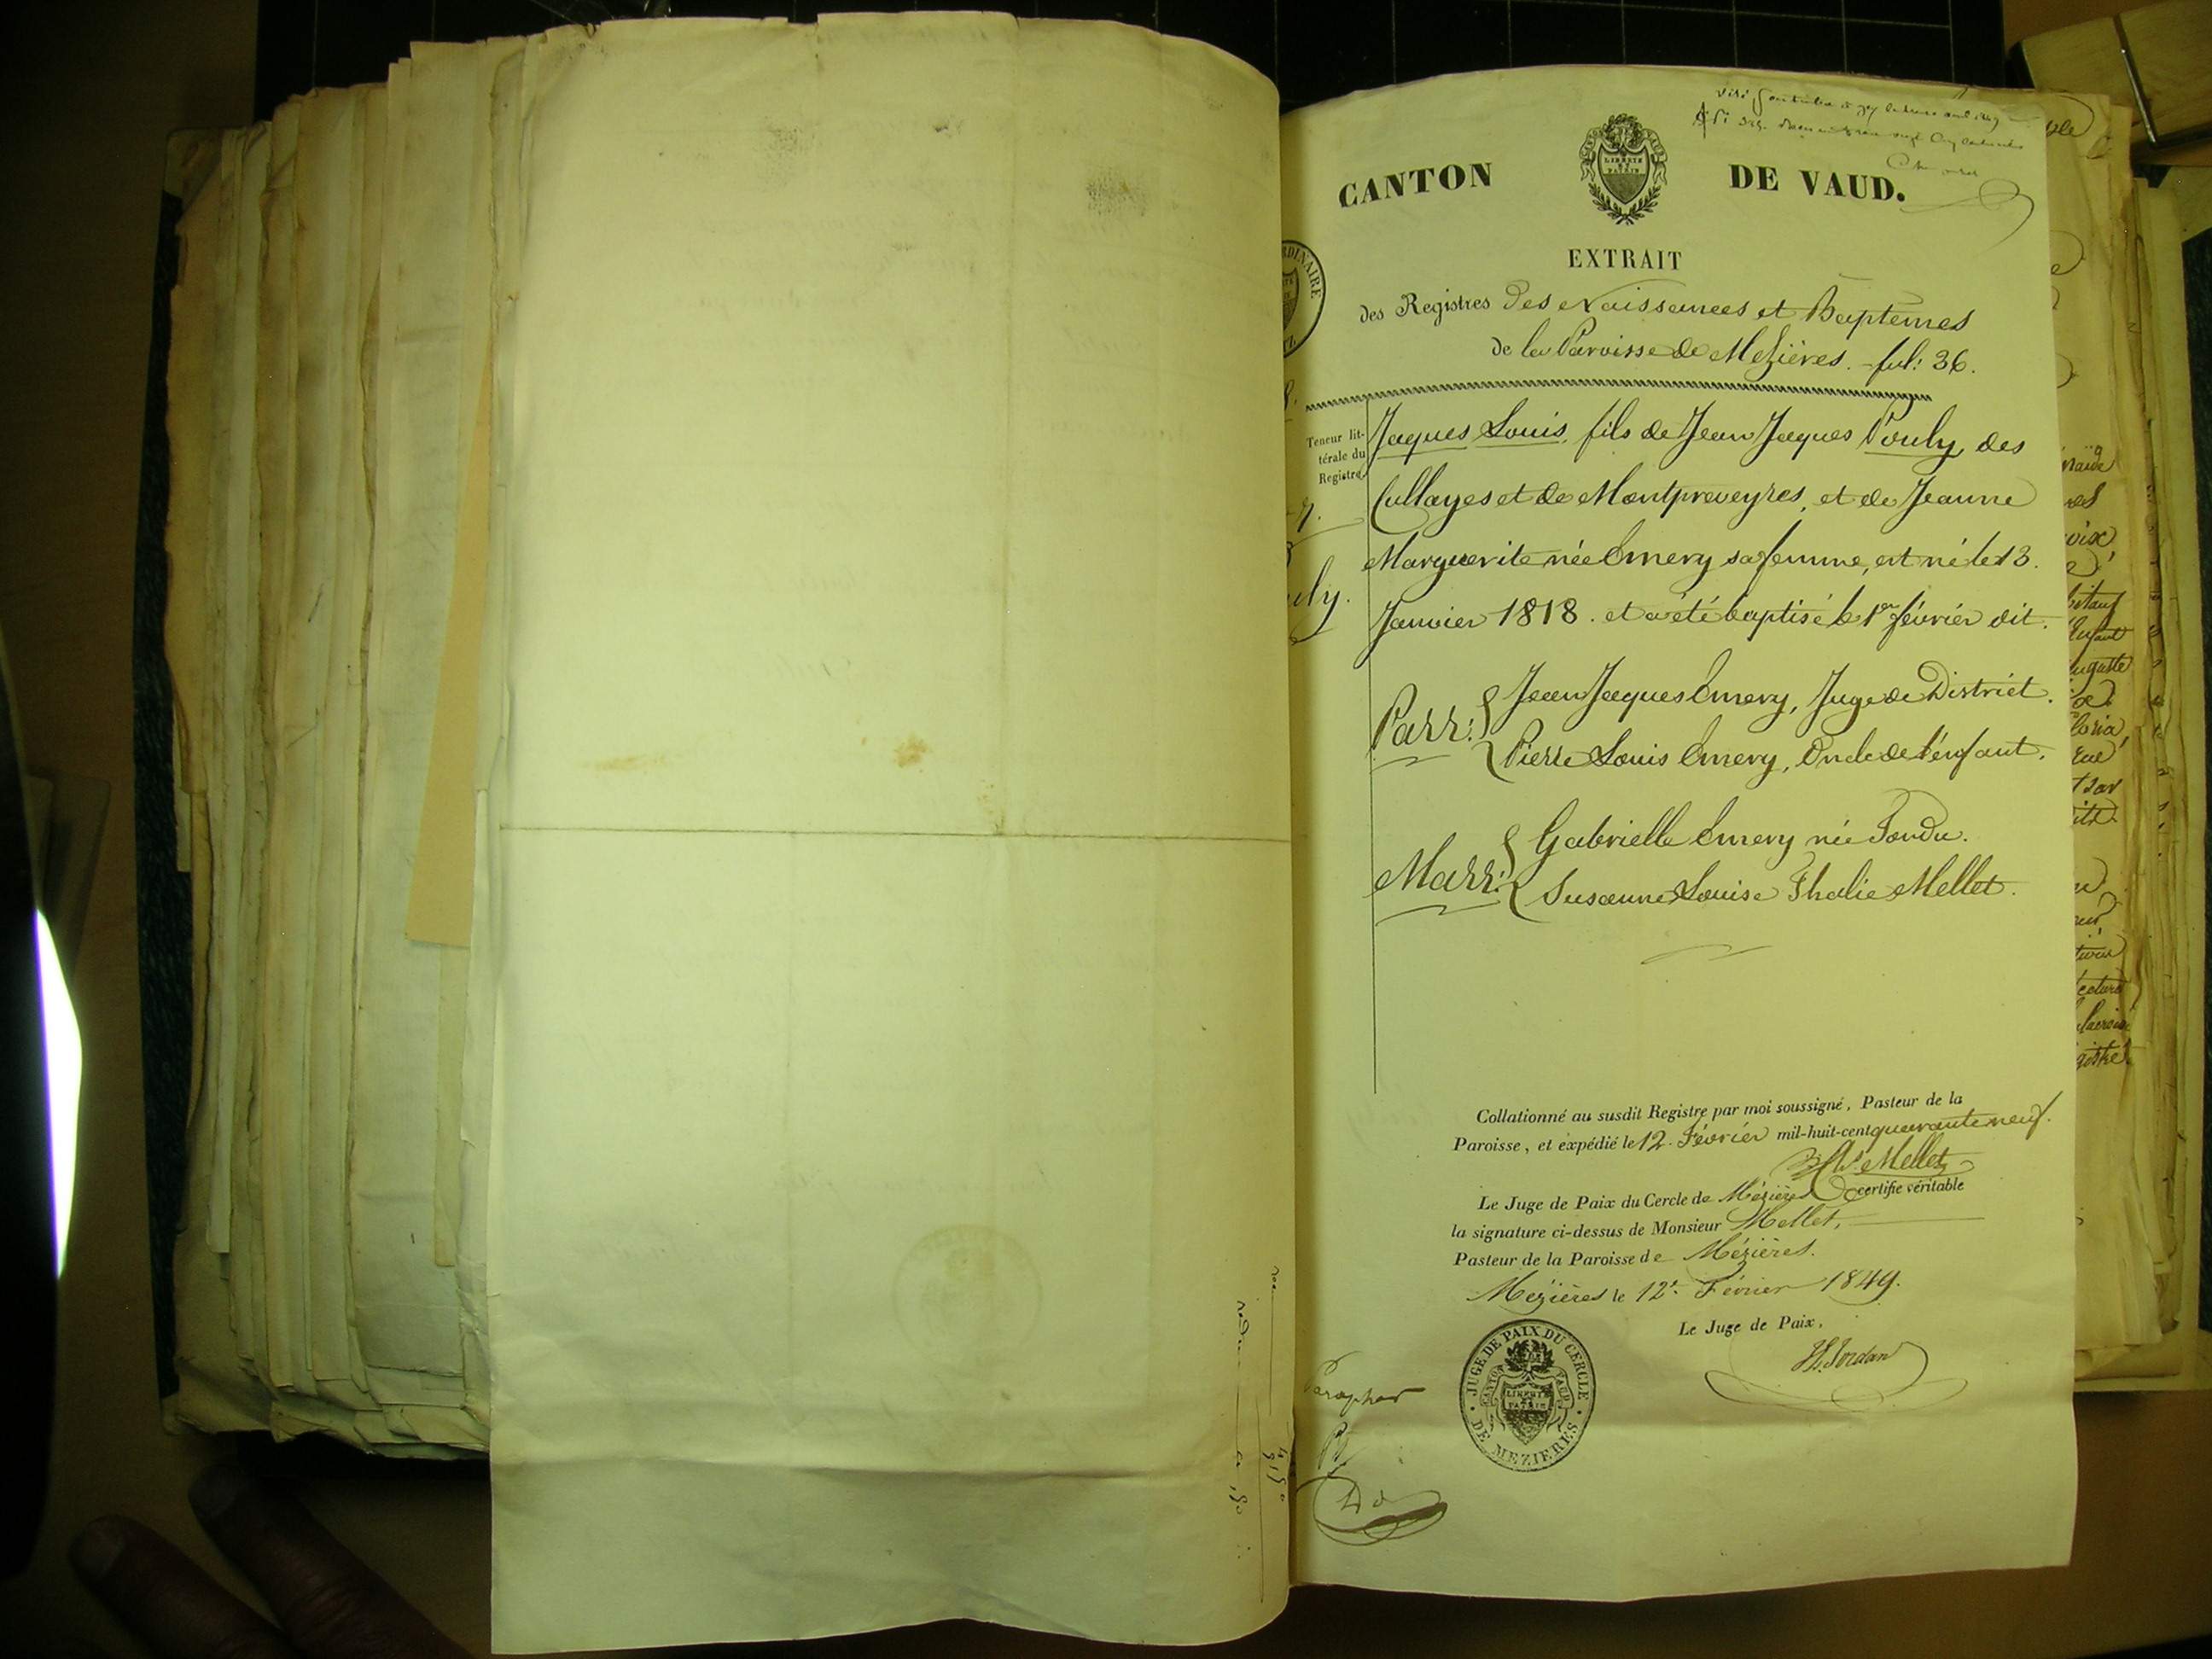 CANTON DE VAUD.
LIBERTÉ ET PATRIE
EXTRAIT
des Registres des Naissances et Baptemes
de la Paroisse de Mezières. - fol: 36.
Teneur lit-
térale du
Registre
Jaques Louis, fils de Jean Jaques Pouly, des
Cullayes et de Montpreveyres, et de Jeanne
Marguerite née Emery sa femme, est né le 13.
Janvier 1818. et a été baptisé le 1er février dit.
Parr: Jean Jaques Emery, Juge de District.
Pierre Louis Emery, Oncle de l'enfant.
Marr: Gabrielle Emery née Tondu.
Susanne Louise Thalie Mellet.
Collationné au susdit Registre par moi soussigné, Pasteur de la
Paroisse, et expédié le 12. Février mil-huit-cent quarante neuf.
Mellet
Le Juge de Paix du Cercle de Mézières certifie véritable
la signature ci-dessus de Monsieur Mellet,
Pasteur de la Paroisse de Mézières.
Mézières le 12e Février 1849.
Le Juge de Paix,
Jordan
JUGE DE PAIX DU CERCLE
DE MEZIERES
CANTON VAUD
LIBERTÉ ET PATRIE